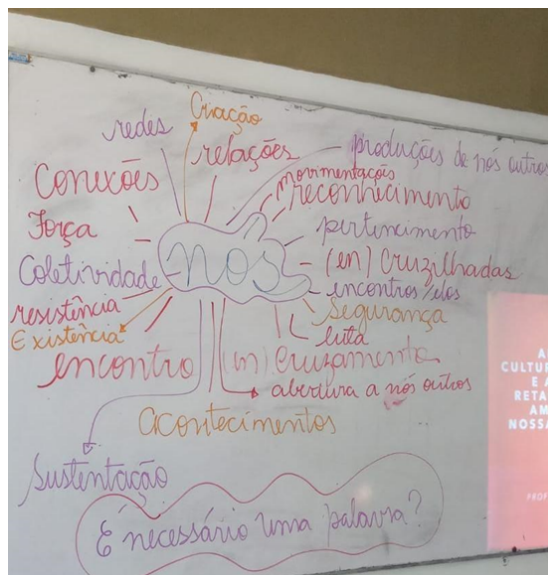 Criação
redes
relações
produções de nós outros
movimentações
reconhecimento
Conexões
Força
pertencimento
Coletividade
nós
(en) Cruzilhadas
encontros/elos
resistência
Segurança
Existência
luta
encontro
(en) Cruzamento
abertura a nós outros
acontecimentos
Sustentação
É necessário uma palavra?
A
CULTUR
E A
RETA
AM
NOSSA
PROF